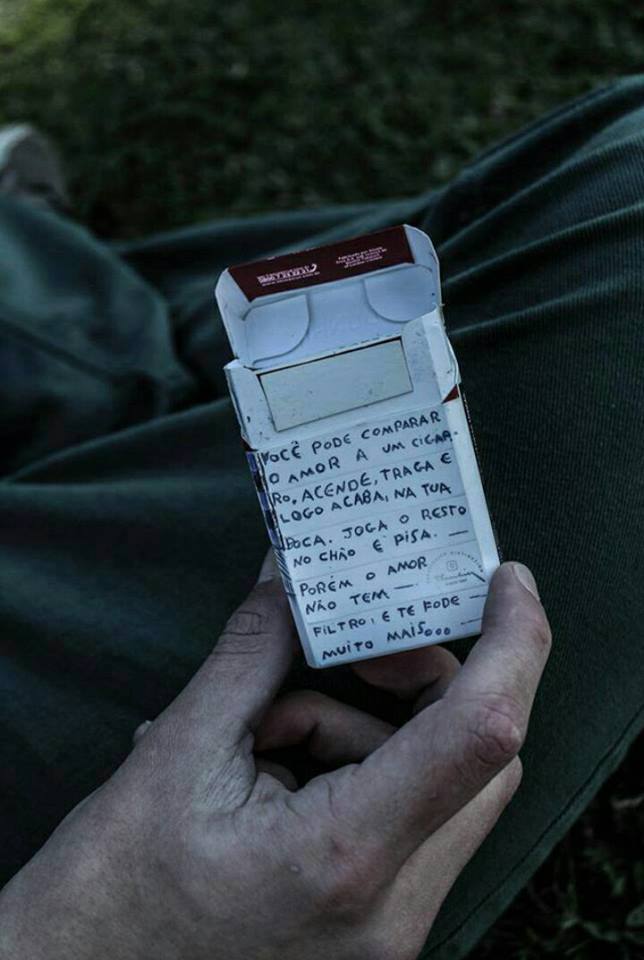 VOCÊ PODE COMPARAR
O AMOR A UM CIGAR-
RO, ACENDE, TRAGA E
LOGO ACABA, NA TUA
BOCA. JOGA O RESTO
NO CHÃO E PISA. —
PORÉM O AMOR
NÃO TEM —
FILTRO, E TE FODE —
MUITO MAIS...